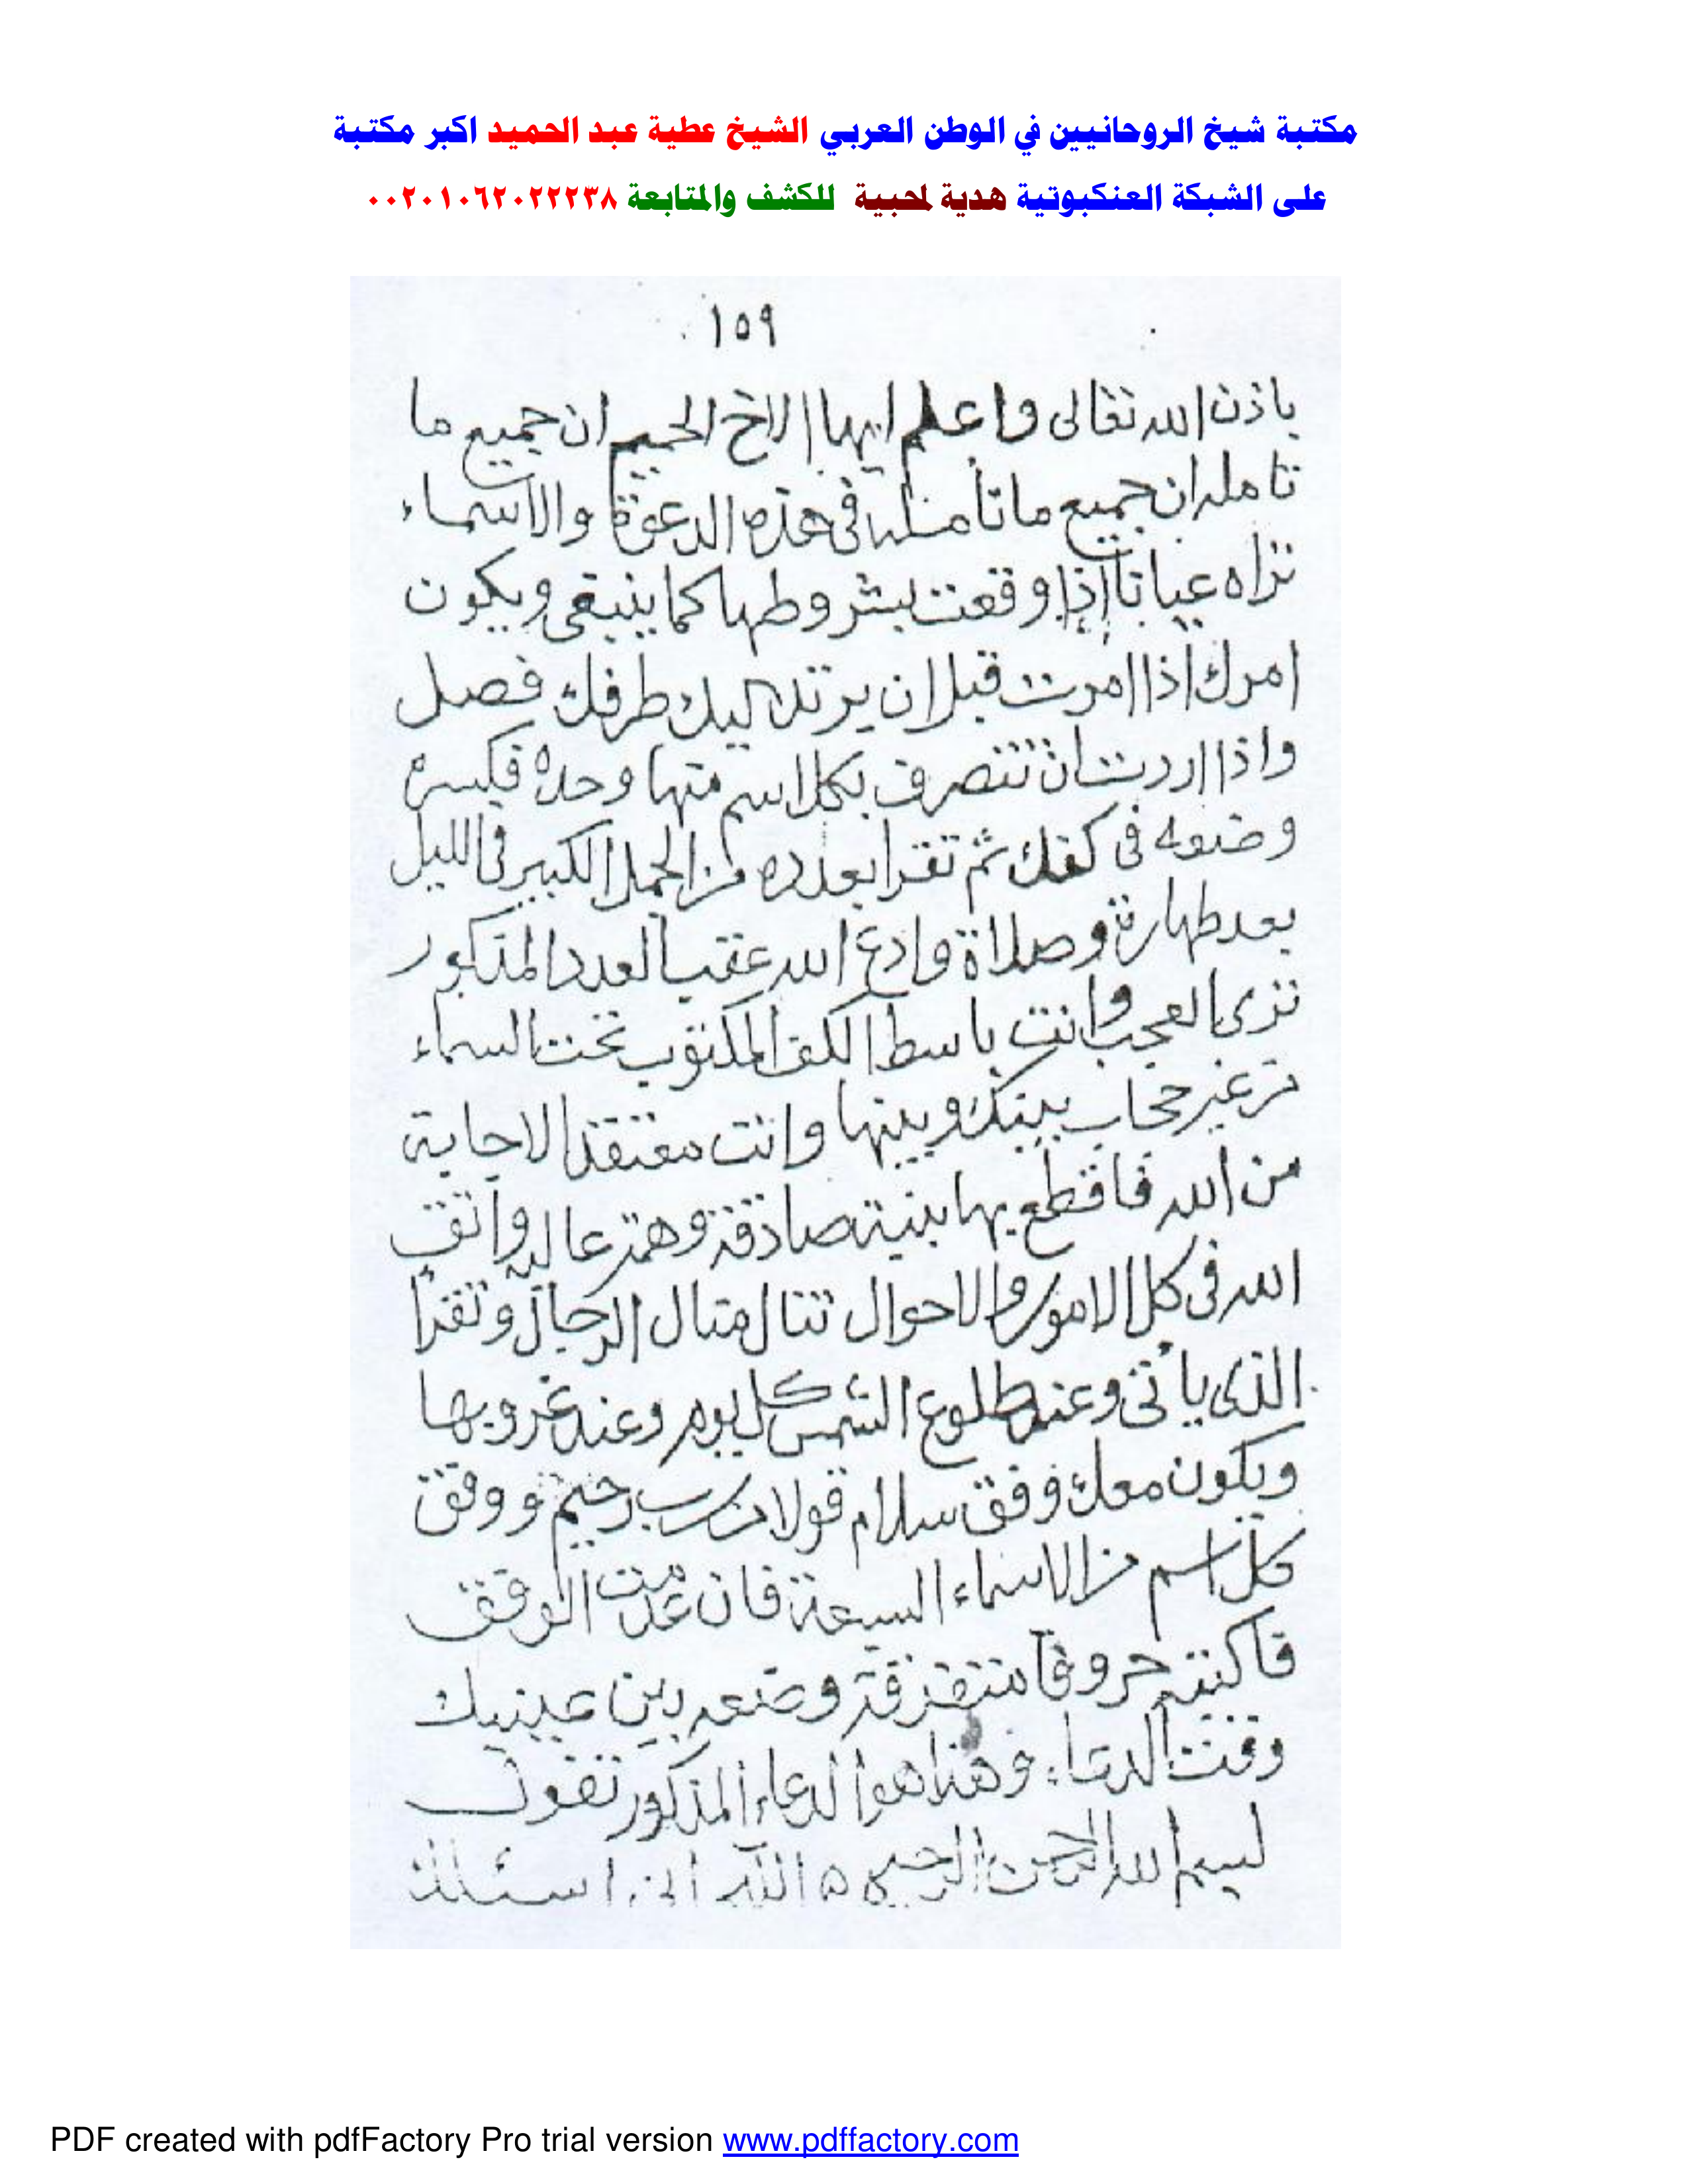 مكتبة شيخ الروحانيين في الوطن العربي الشيخ عطية عبد الحميد اكبر مكتبة
على الشبكة العنكبوتية هدية لمحبية للكشف والمتابعة ٠٠٢٠١٠٦٢٠٢٢٢٣٨
١٥٩
باذن الله تعالى واعلم ايها الاخ الحميم ان جميع ما
تامله ان جميع ما تأمله فى هذه الدعوة والاسماء
تراه عيانا اذا وقعت بشروطها كما ينبغى ويكون
امرك اذا امرت قبل ان يرتد اليك طرفك فصل
واذا اردت ان تتصرف بكل اسم منها وحده فكسره
وضعه فى كفك ثم تقرا بعدده من الجمل الكبير فى الليل
بعد طهارة وصلاة وادع الله عقب العدد المذكور
ترى العجب وانت باسط الكف المكتوب تحت السماء
من غير حجاب بينك وبينها وانت معتقد الاجابة
من الله فاقطع بها بنية صادقة وهمة عالية واتق
الله فى كل الامور والاحوال تنال منال الرجال وتقرأ
الذى يأتى وعند طلوع الشمس كل يوم وعند غروبها
ويكون معك وفق سلام قولا من رب رحيم ووفق
كل اسم من الاسماء السبعة فان عدمت الوفق
فاكتبه حروفا متفرقة وضعه بين عينيك
وقت الدعاء وهذا هو الدعاء المذكور تقول
بسم الله الرحمن الرحيم ه اللهم انى اسئلك
PDF created with pdfFactory Pro trial version www.pdffactory.com